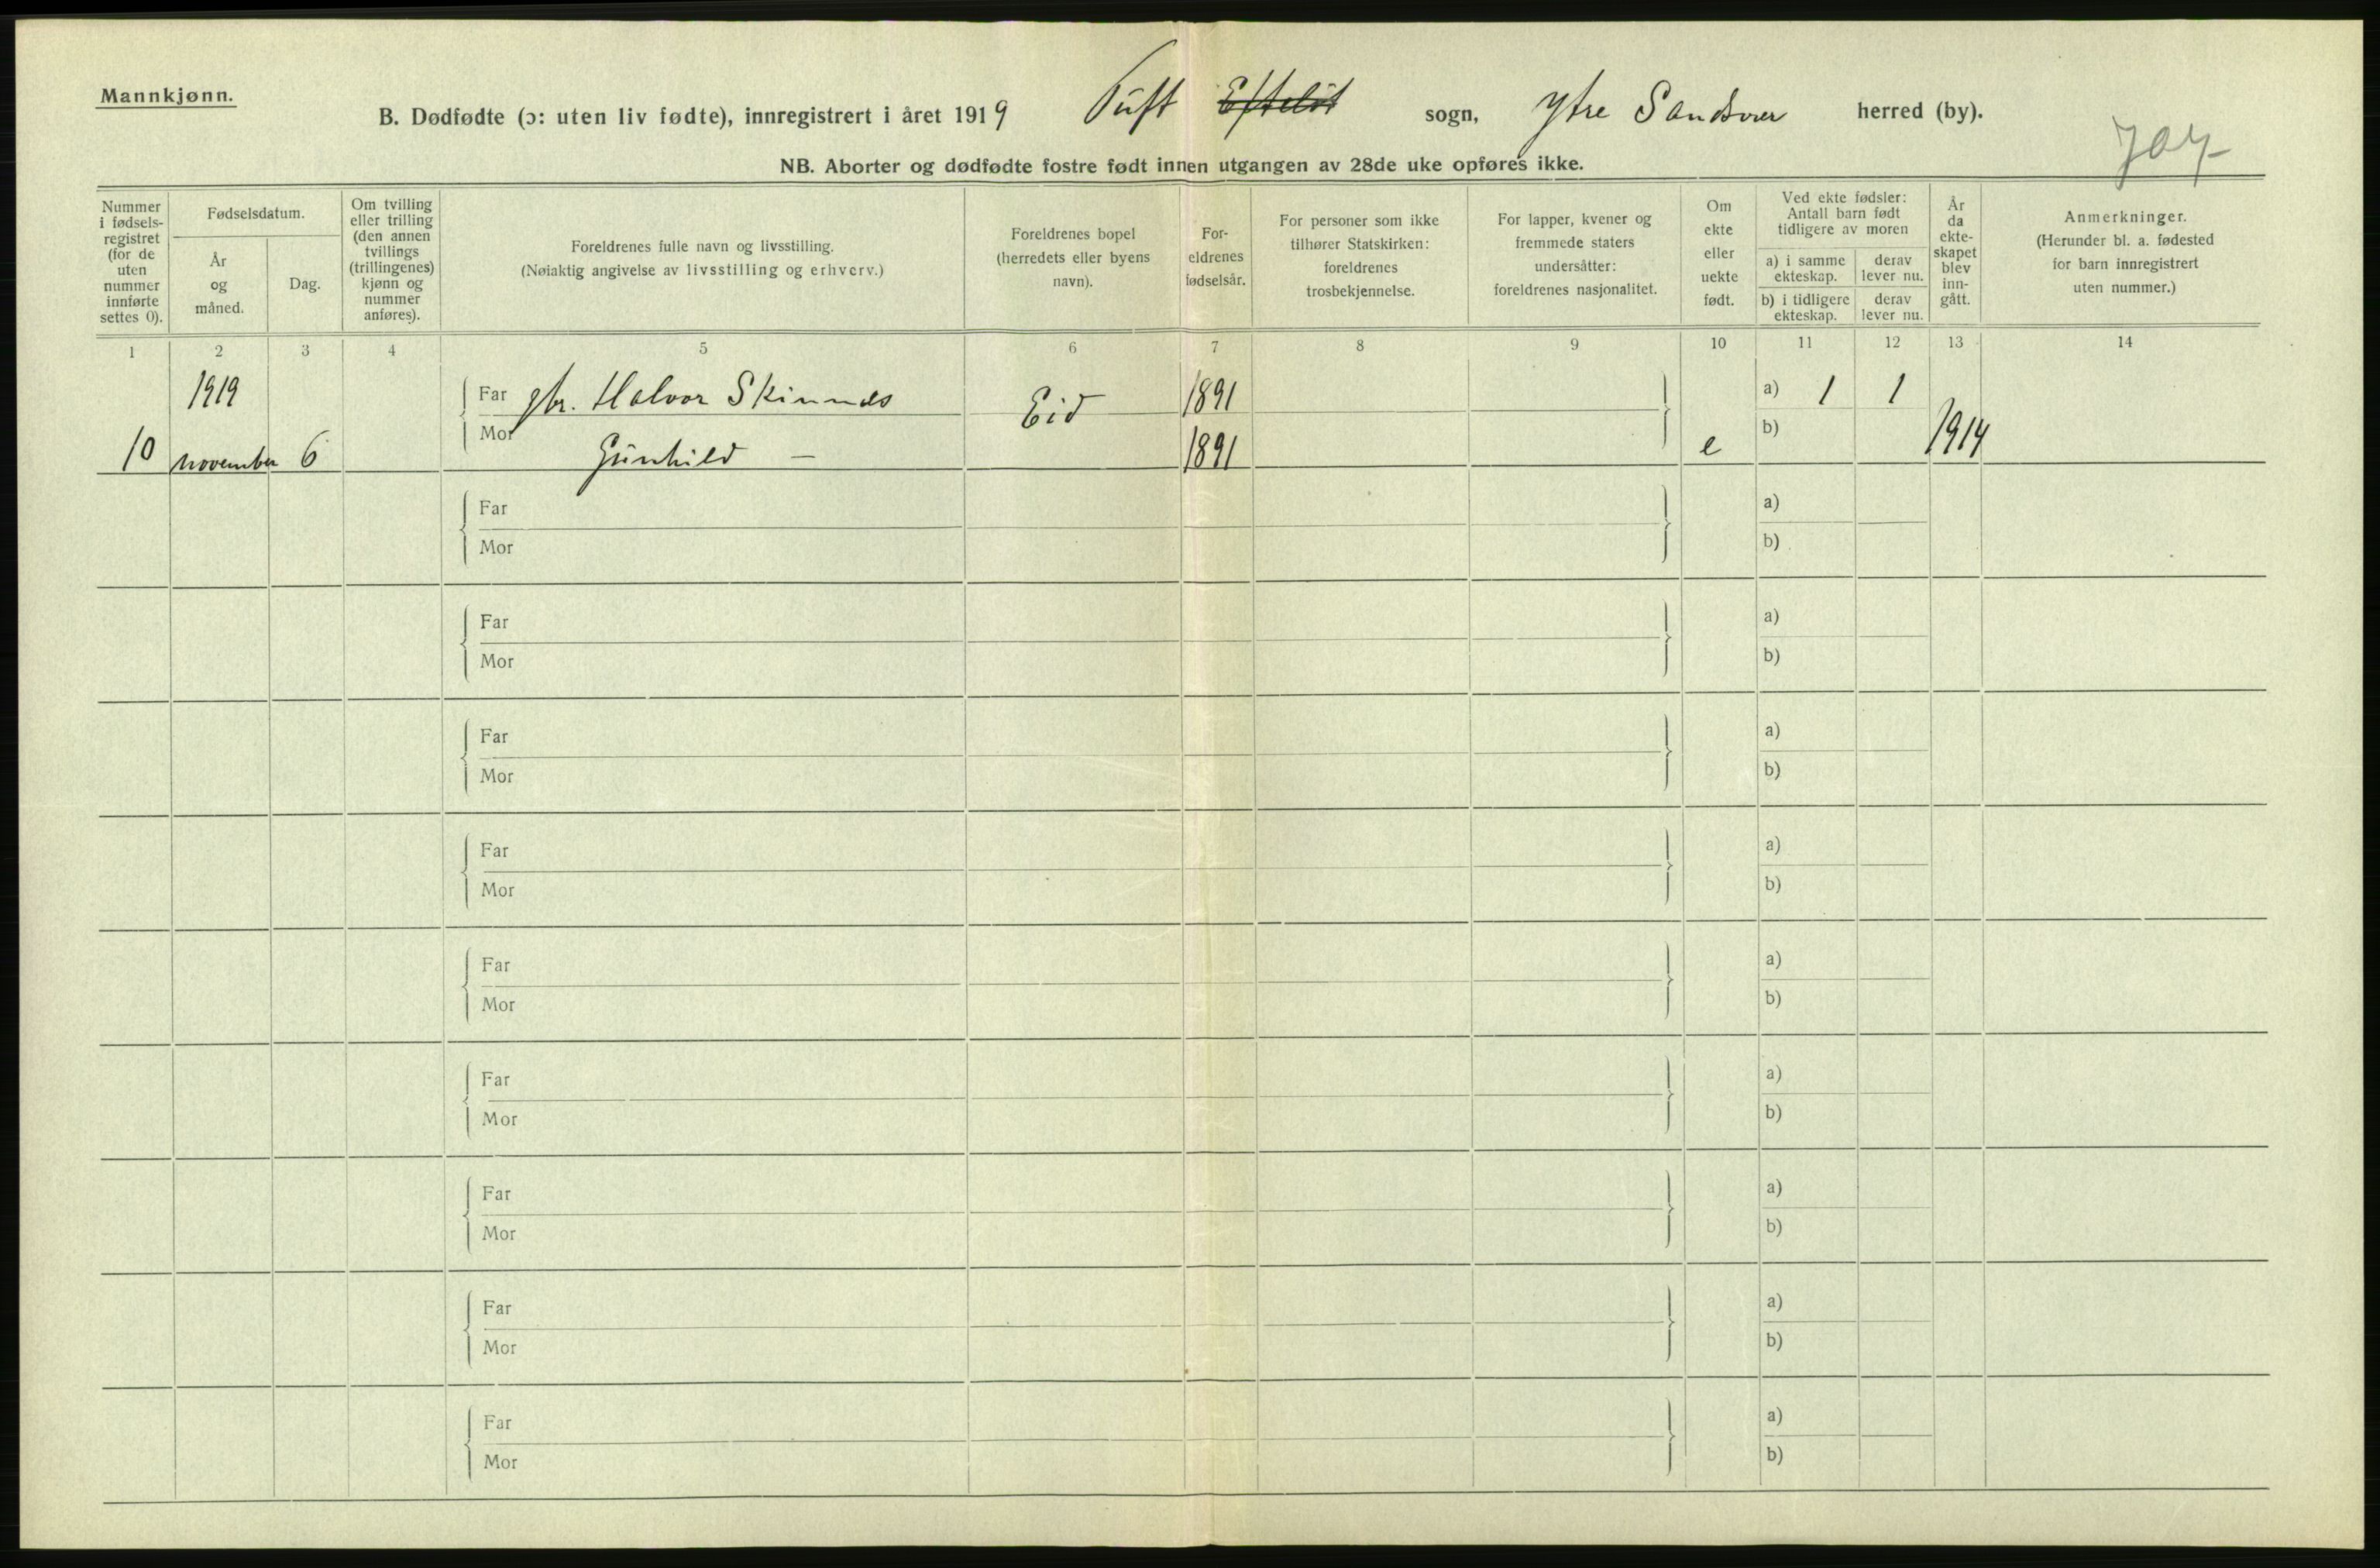 Mannkjønn.
B. Dødfødte (ɔ: uten liv fødte), innregistrert i året 1919 Tuft Efteløt sogn, Ytre Sandsvær herred (by).
NB. Aborter og dødfødte fostre født innen utgangen av 28de uke opføres ikke.
Nummer i fødsels-registret (for de uten nummer innførte settes 0).
Fødselsdatum.
År og måned.
Dag.
Om tvilling eller trilling (den annen tvillings (trillingenes) kjønn og nummer anføres).
Foreldrenes fulle navn og livsstilling.
(Nøiaktig angivelse av livsstilling og erhverv.)
Foreldrenes bopel (herredets eller byens navn).
For-eldrenes fødselsår.
For personer som ikke tilhører Statskirken: foreldrenes trosbekjennelse.
For lapper, kvener og fremmede staters undersåtter: foreldrenes nasjonalitet.
Om ekte eller uekte født.
Ved ekte fødsler: Antall barn født tidligere av moren
a) i samme ekteskap.
derav lever nu.
b) i tidligere ekteskap.
derav lever nu.
År da ekte-skapet blev inn-gått.
Anmerkninger.
(Herunder bl. a. fødested for barn innregistrert uten nummer.)
1 2 3 4 5 6 7 8 9 10 11 12 13 14
1919 Far gbr. Halvor Skinnes Eid 1891 a) 1 1
10 november 6 Mor Gunhild — 1891 e b) 1914
Far a)
Mor b)
Far a)
Mor b)
Far a)
Mor b)
Far a)
Mor b)
Far a)
Mor b)
Far a)
Mor b)
Far a)
Mor b)
Far a)
Mor b)
Far a)
Mor b)